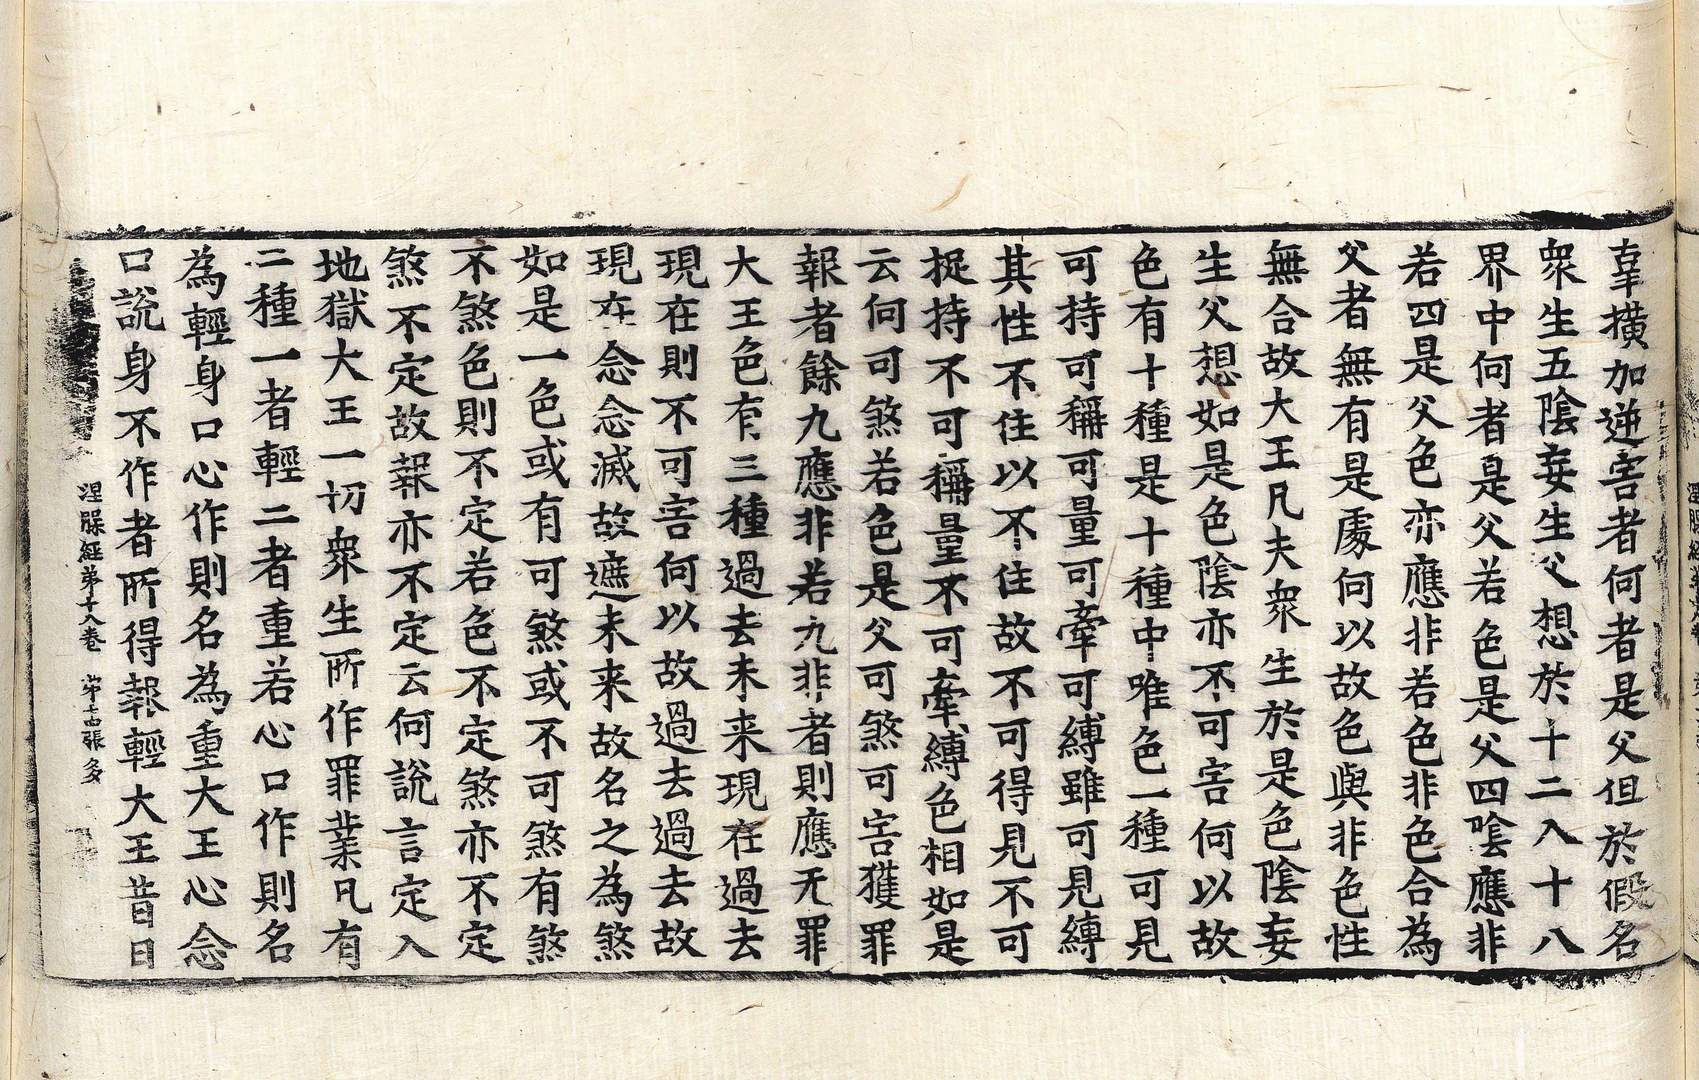 辜撗加逆害者何者是父但於假名
衆生五陰妄生父想於十二入十八
界中何者是父若色是父四陰應非
若四是父色亦應非若色非色合為
父者無有是處何以故色與非色性
無合故大王凡夫衆生於是色陰妄
生父想如是色陰亦不可害何以故
色有十種是十種中唯色一種可見
可持可稱可量可牽可縛雖可見縛
其性不住以不住故不可得見不可
捉持不可稱量不可牽縛色相如是
云何可煞若色是父可煞可害獲罪
報者餘九應非若九非者則應无罪
大王色有三種過去未来現在過去
現在則不可害何以故過去過去故
現在念念滅故遮未来故名之為煞
如是一色或有可煞或不可煞有煞
不煞色則不定若色不定煞亦不定
煞不定故報亦不定云何說言定入
地獄大王一切衆生所作罪業凡有
二種一者輕二者重若心口作則名
為輕身口心作則名為重大王心念
口說身不作者所得報輕大王昔日
涅槃經第十八卷 第十四張 多